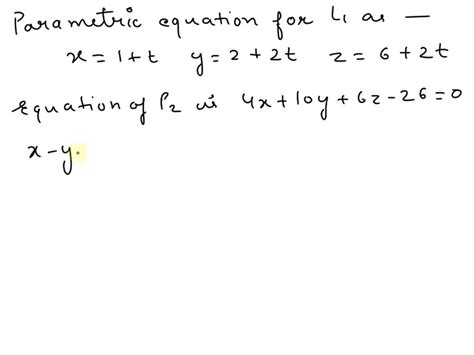 Parametric equation for L1 as —
x = 1 + t y = 2 + 2t z = 6 + 2t
equation of P2 is 4x + 10y + 6z - 26 = 0
x - y